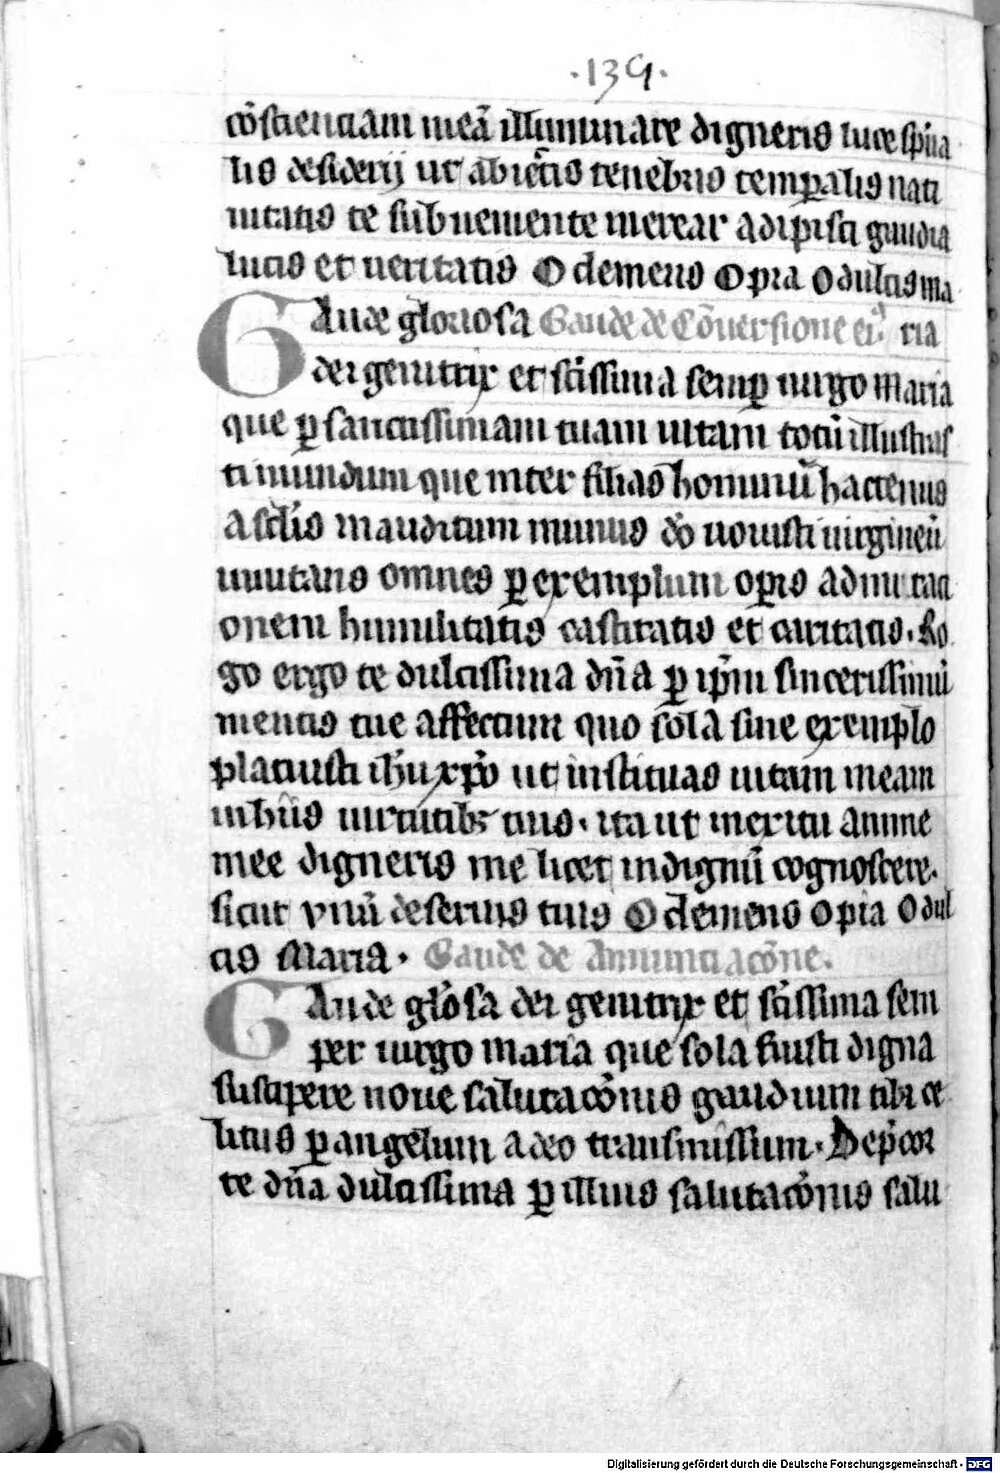 ·139·
co̅scienciam mea̅ illuminare digneris luce sp̅ua
lis desiderij ut abiectis tenebris temp̲alis nati
uitatis te subueniente merear adipisci gaudia
lucis et ueritatis O clemens O pia O dulcis ma
Gaude gloriosa Gaude de Co̅uersione eiꝰ. ria
dei genitrix et sc̅issima semꝑ uirgo maria
que ꝑ sanctissimam tuam uitam totu̅ illustras
ti mundum que inter filias hominu̅ hactenus
a sc̅lis inauditum munus do̅ nouisti uirgineu̅
inuitans omnes ꝑ exemplum oꝑis ad imitaci
onem humilitatis castitatis et caritatis. Ro
go ergo te dulcissima dn̅a ꝑ ip̅m sincerissimu̅
mentis tue affectum quo sola sine exemplo
placuisti ih̅u xp̅o ut instituas uitam meam
in hiis uirtutibꝫ tuis. ita ut meritu anime
mee digneris me licet indignu̅ cognoscere.
sicut vnu̅ de seruis tuis O clemens O pia O dul
cis Maria. Gaude de Annunciaco̅ne.
Gaude glo̅sa dei genitrix et sc̅issima sem
per uirgo maria que sola fuisti digna
suscipere noue salutaco̅nis gaudium tibi ce
litus ꝑ angelum a deo transmissum. Dep̅cor
te dn̅a dulcissima ꝑ illius salutaco̅nis salu
Digitalisierung gefördert durch die Deutsche Forschungsgemeinschaft - DFG